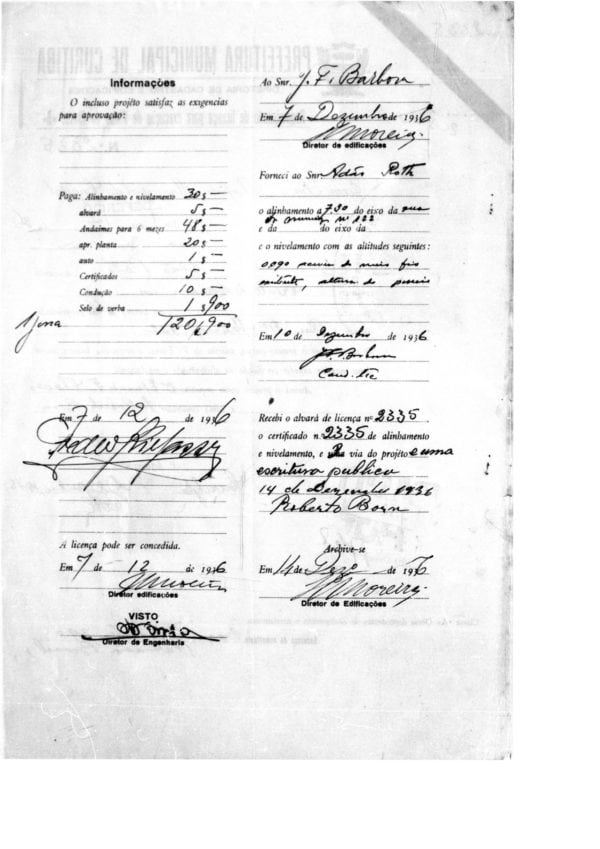 Informações
O incluso projéto satisfaz as exigencias
para aprovação:
Paga: Alinhamento e nivelamento 30$—
alvará 5$—
Andaimes para 6 mezes 48$—
apr. planta 20$—
auto 1$—
Certificados 5$—
Condução 10$—
Selo de verba 1$900
120$900
Em 7 de 12 de 1936
A licença pode ser concedida.
Em 7 de 12 de 1936
Diretor edificações
VISTO
Diretor de Engenharia
Ao Snr. J. F. Barbosa
Em 7 de Dezembro de 1936
Moreira
Diretor de edificações
Forneci ao Snr Adão Roth
o alinhamento a 7.30 do eixo da rua
e da do eixo da
e o nivelamento com as altitudes seguintes:
0,90 de meio fio
altura do passeio
Em 10 de Dezembro de 1936
Recebi o alvará de licença nº 2335
o certificado n. 2335 de alinhamento
e nivelamento, e a via do projéto e uma
escritura publica
14 de Dezembro 1936
Roberto Born
Archive-se
Em 14 de Dezº de 1936
Moreira
Diretor de Edificações